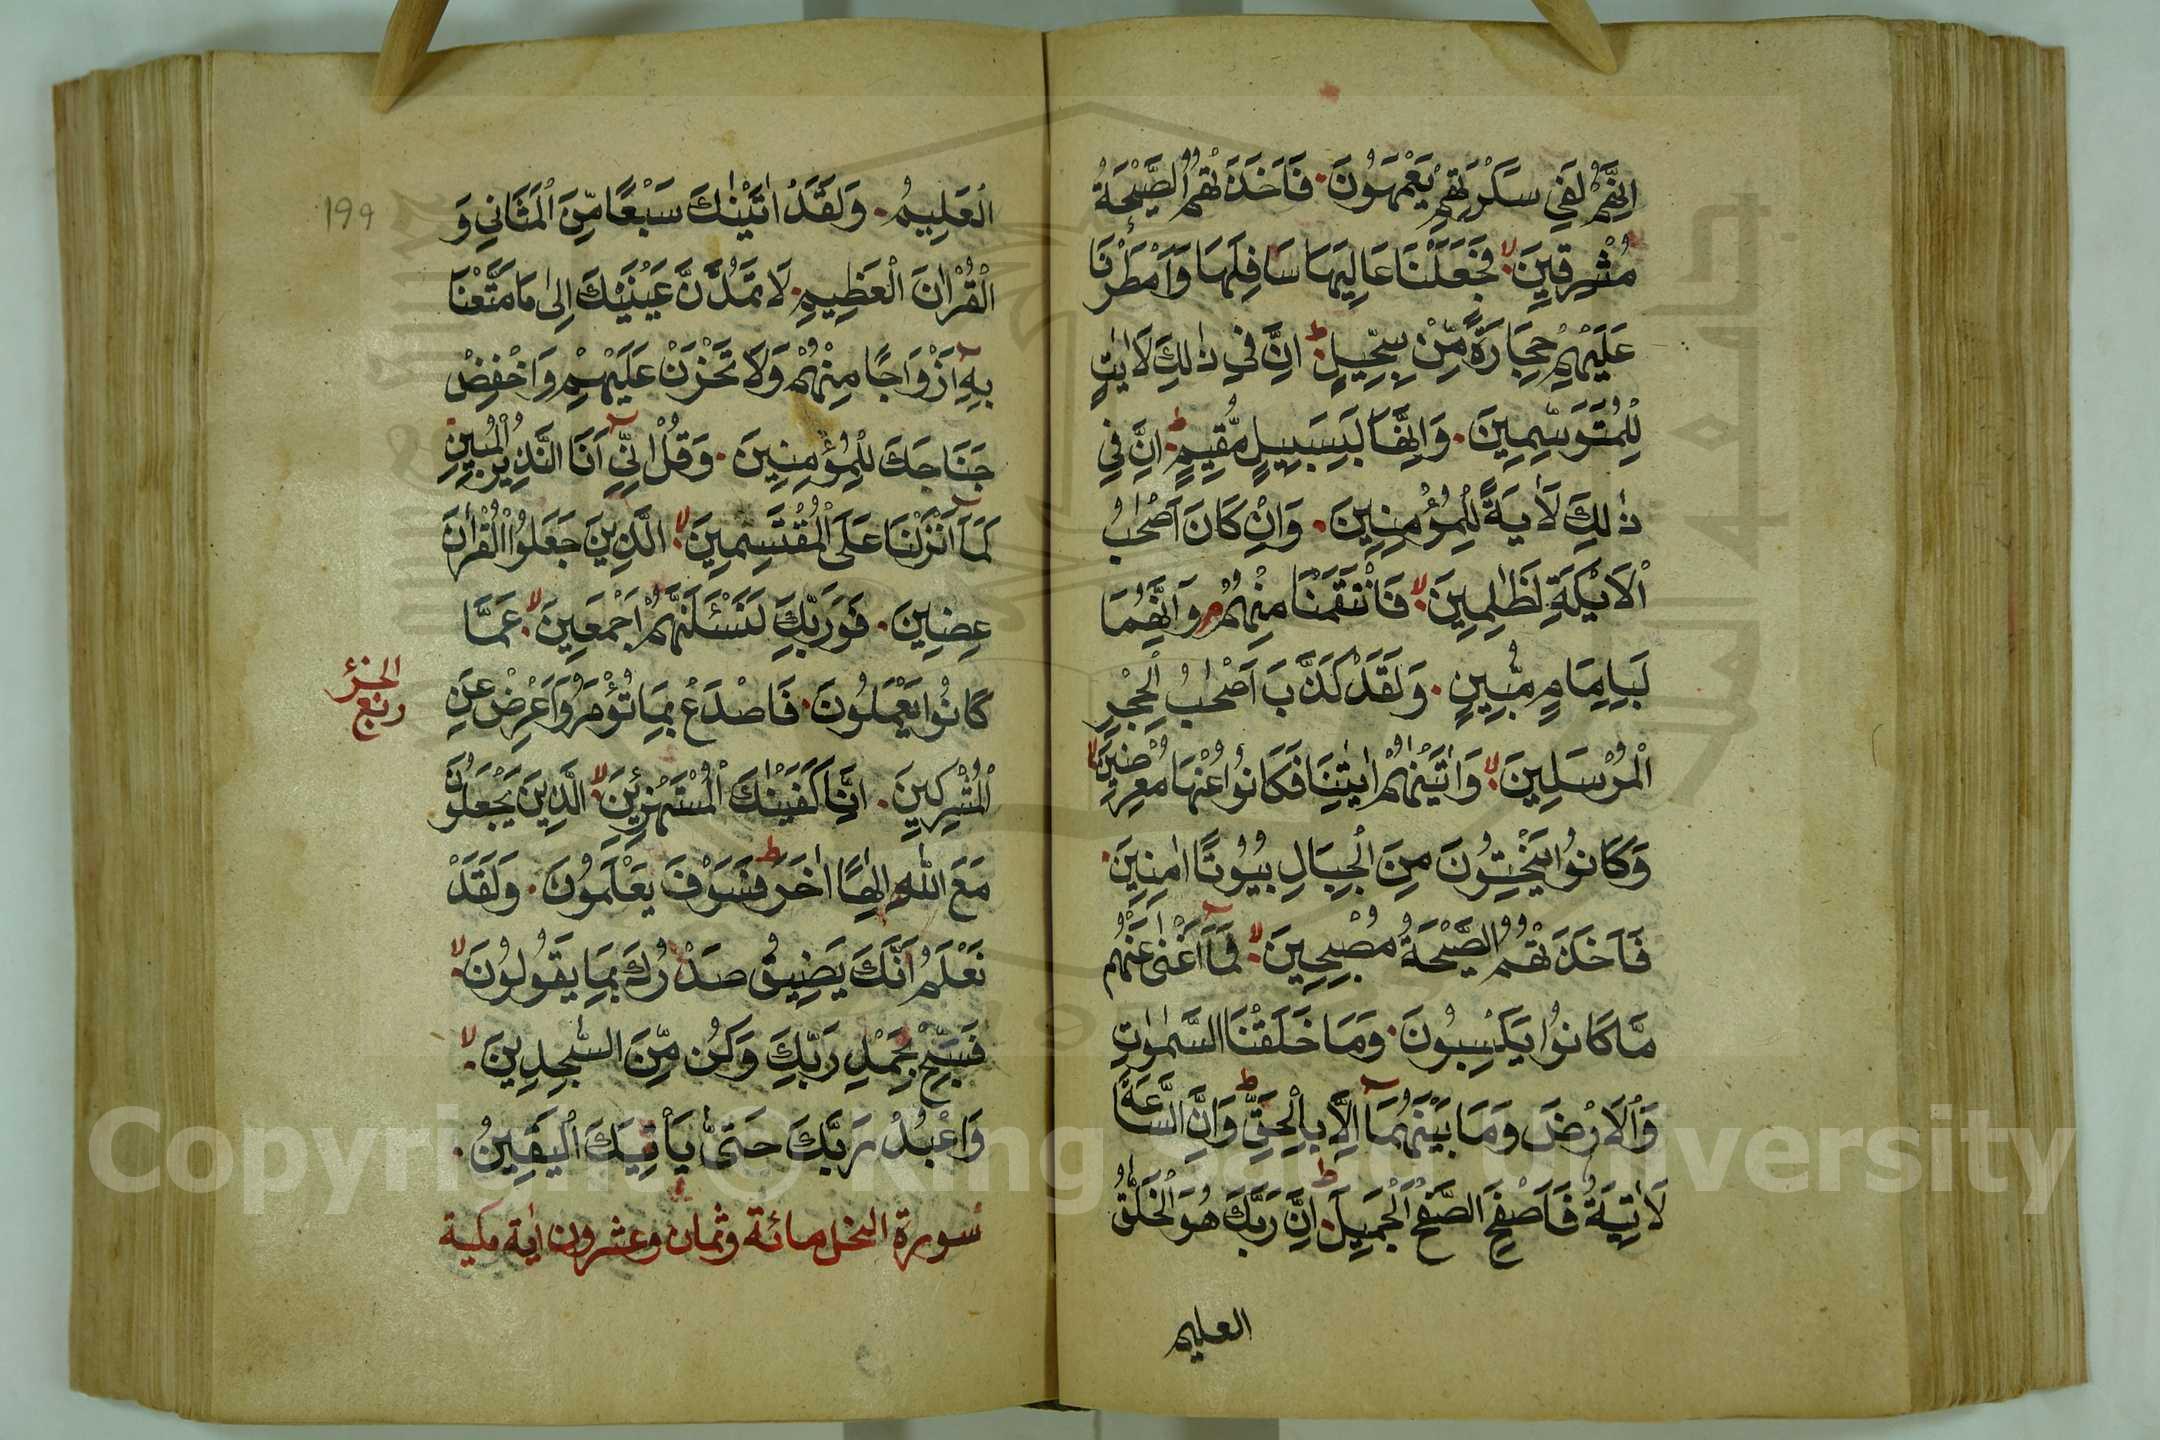 اِنَّهُمْ لَفِي سَكْرَتِهِمْ يَعْمَهُونَ. فَاَخَذَتْهُمُ الصَّيْحَةُ
مُشْرِقِينَ. لا فَجَعَلْنَا عَالِيَهَا سَافِلَهَا وَاَمْطَرْنَا
عَلَيْهِمْ حِجَارَةً مِّنْ سِجِّيلٍ. ط اِنَّ فِي ذٰلِكَ لَاٰيٰتٍ
لِلْمُتَوَسِّمِينَ. وَاِنَّهَا لَبِسَبِيلٍ مُّقِيمٍ. ط اِنَّ فِي
ذٰلِكَ لَاٰيَةً لِلْمُؤْمِنِينَ. وَاِنْ كَانَ اَصْحٰبُ
الْاَيْكَةِ لَظٰلِمِينَ. لا فَانْتَقَمْنَا مِنْهُمْ م وَاِنَّهُمَا
لَبِاِمَامٍ مُّبِينٍ. وَلَقَدْ كَذَّبَ اَصْحٰبُ الْحِجْرِ
الْمُرْسَلِينَ. لا وَاٰتَيْنٰهُمْ اٰيٰتِنَا فَكَانُوا عَنْهَا مُعْرِضِينَ. لا
وَكَانُوا يَنْحِتُونَ مِنَ الْجِبَالِ بُيُوتًا اٰمِنِينَ.
فَاَخَذَتْهُمُ الصَّيْحَةُ مُصْبِحِينَ. لا فَمَا اَغْنٰى عَنْهُمْ
مَّا كَانُوا يَكْسِبُونَ. وَمَا خَلَقْنَا السَّمٰوٰتِ
وَالْاَرْضَ وَمَا بَيْنَهُمَا اِلَّا بِالْحَقِّ ط وَاِنَّ السَّاعَةَ
لَاٰتِيَةٌ فَاصْفَحِ الصَّفْحَ الْجَمِيلَ. ط اِنَّ رَبَّكَ هُوَ الْخَلّٰقُ
العليم
199
الْعَلِيمُ. وَلَقَدْ اٰتَيْنٰكَ سَبْعًا مِّنَ الْمَثَانِي وَ
الْقُرْاٰنَ الْعَظِيمِ. لَا تَمُدَّنَّ عَيْنَيْكَ اِلٰى مَا مَتَّعْنَا
بِهِ اَزْوَاجًا مِنْهُمْ وَلَا تَحْزَنْ عَلَيْهِمْ وَاخْفِضْ
جَنَاحَكَ لِلْمُؤْمِنِينَ. وَقُلْ اِنِّي اَنَا النَّذِيرُ الْمُبِينُ
كَمَا اَنْزَلْنَا عَلَى الْمُقْتَسِمِينَ. لا الَّذِينَ جَعَلُوا الْقُرْاٰنَ
عِضِينَ. فَوَرَبِّكَ لَنَسْئَلَنَّهُمْ اَجْمَعِينَ. لا عَمَّا
كَانُوا يَعْمَلُونَ. فَاصْدَعْ بِمَا تُؤْمَرُ وَاَعْرِضْ عَنِ
الجزء
ربع
الْمُشْرِكِينَ. اِنَّا كَفَيْنٰكَ الْمُسْتَهْزِئِينَ. لا الَّذِينَ يَجْعَلُونَ
مَعَ اللّٰهِ اِلٰهًا اٰخَرَ ط فَسَوْفَ يَعْلَمُونَ. وَلَقَدْ
نَعْلَمُ اَنَّكَ يَضِيقُ صَدْرُكَ بِمَا يَقُولُونَ. لا
فَسَبِّحْ بِحَمْدِ رَبِّكَ وَكُنْ مِّنَ السّٰجِدِينَ. لا
وَاعْبُدْ رَبَّكَ حَتّٰى يَاْتِيَكَ الْيَقِينُ.
سورة النحل مائة وثمان وعشرون اية مكية
Copyright © King Saud University